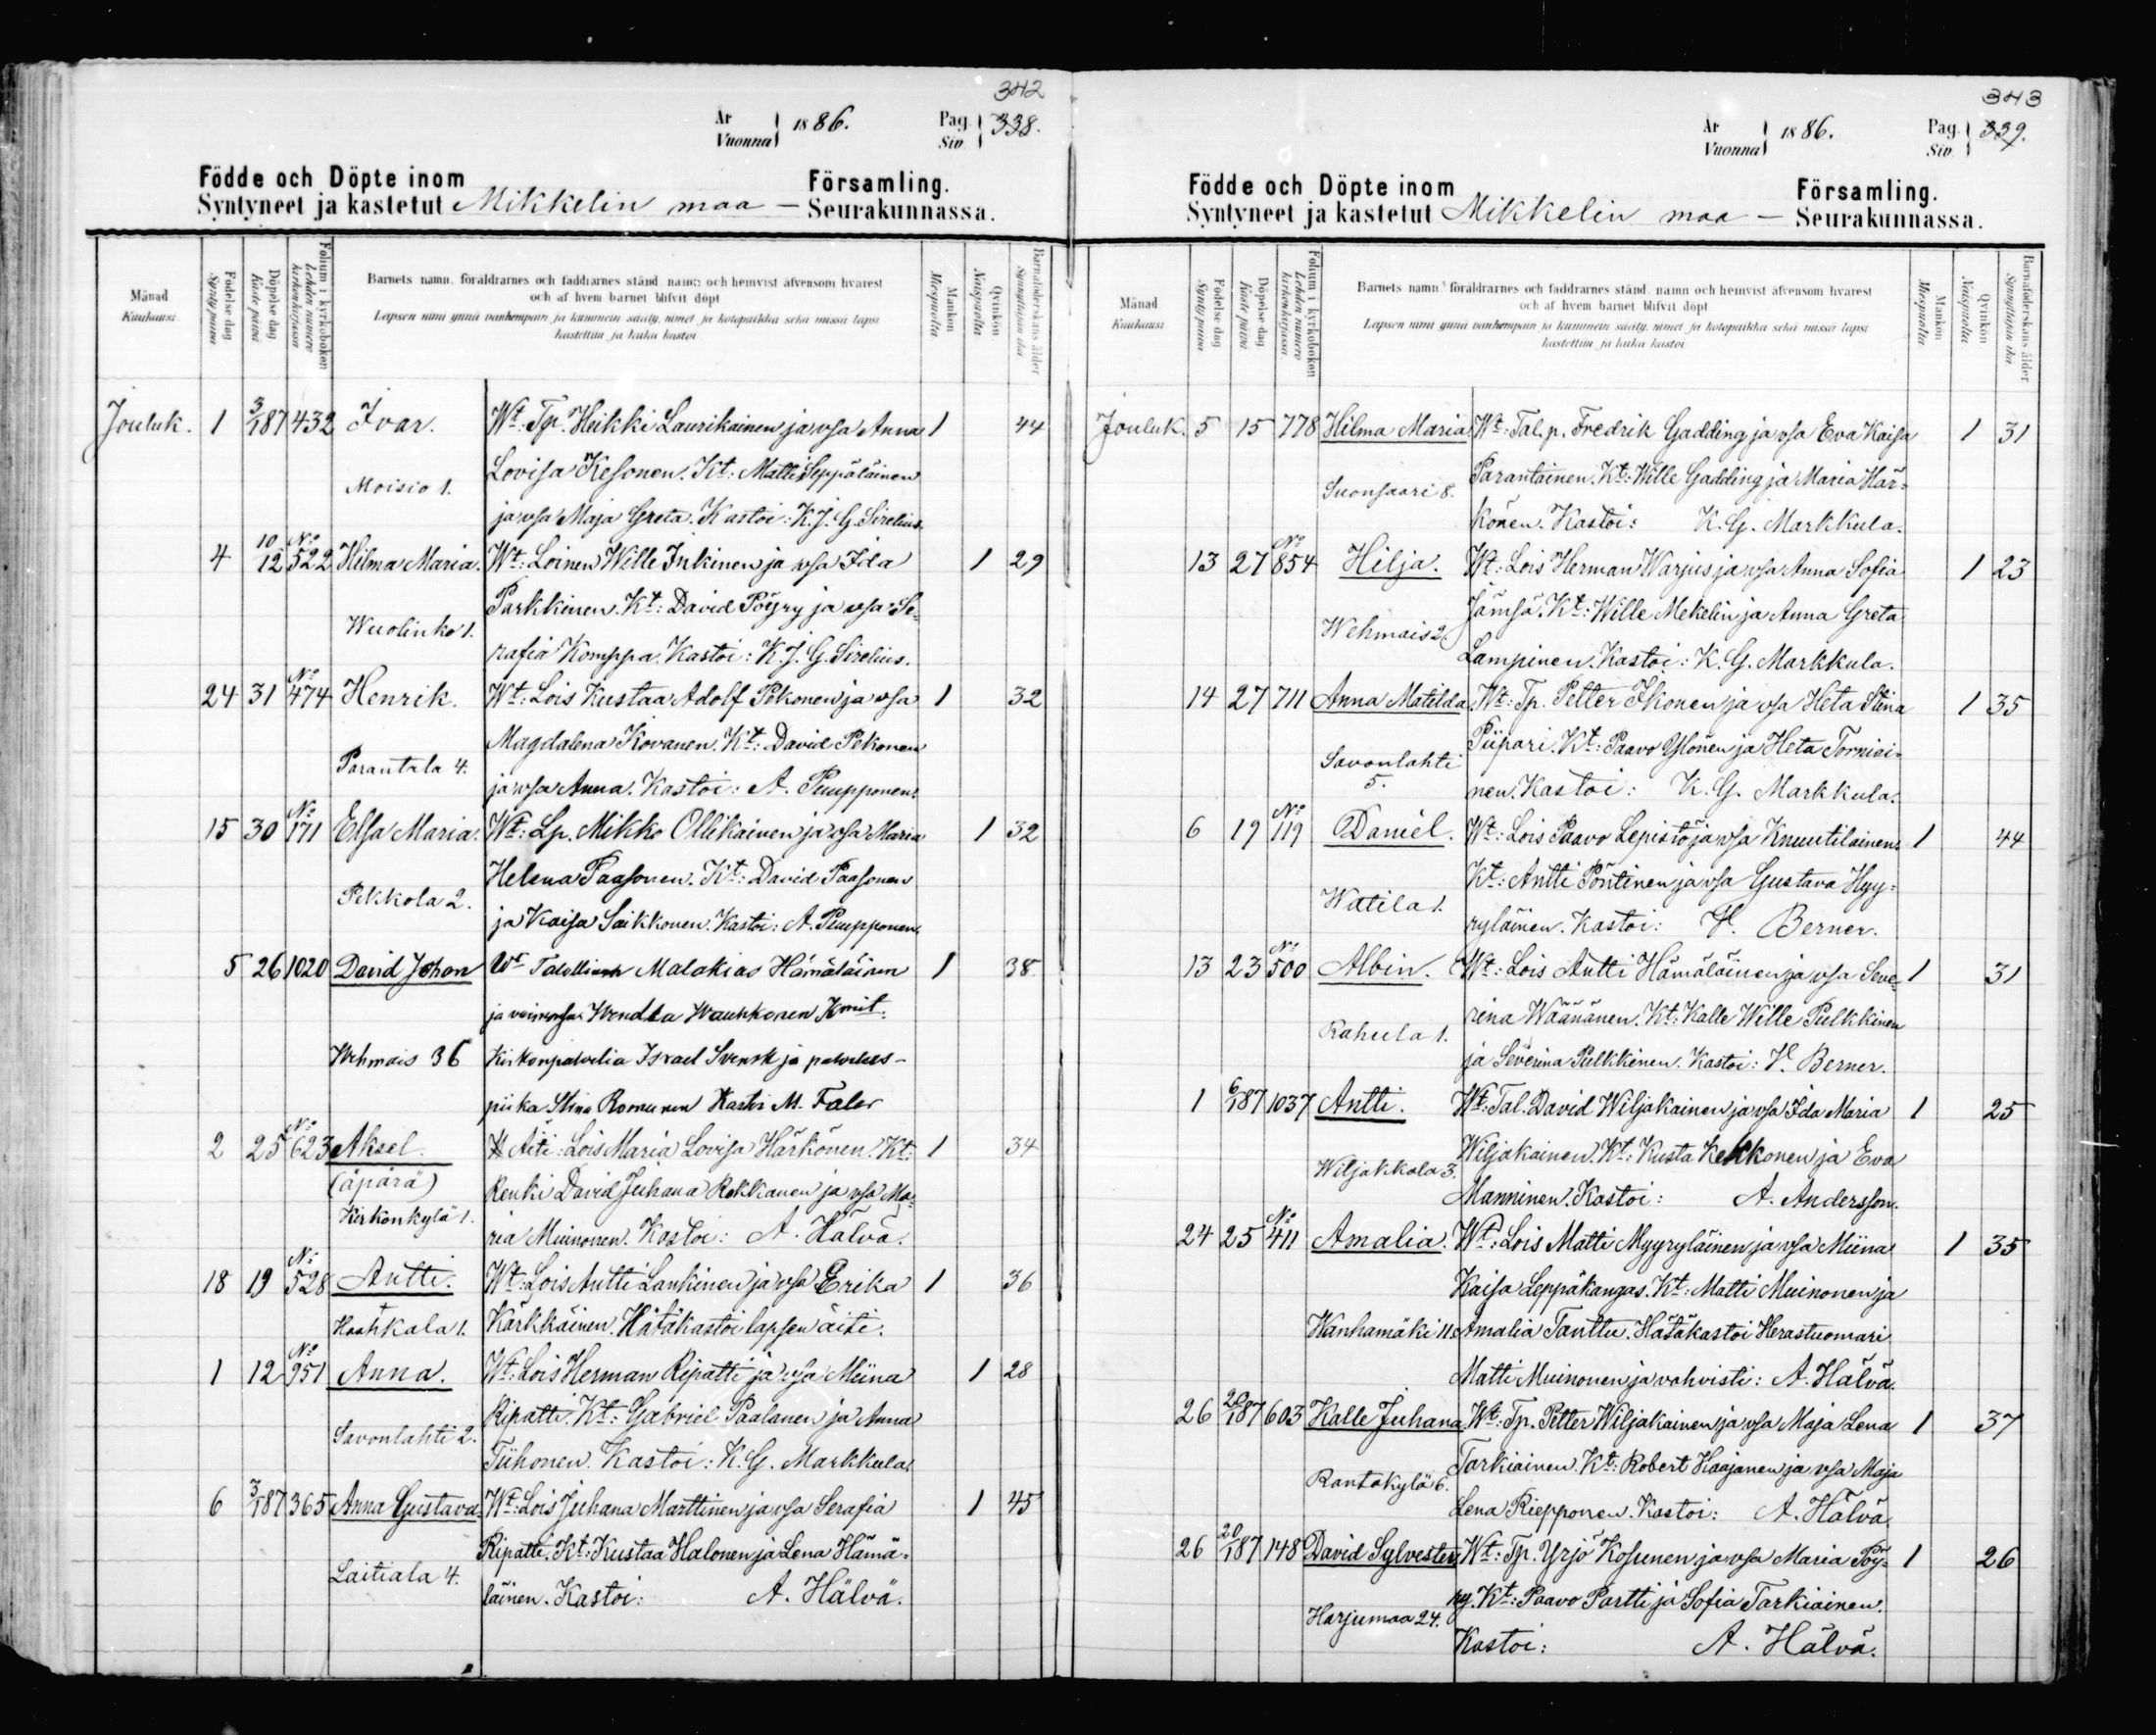 342
År 1886. Pag. 338.
Vuonna Siv.
Födde och Döpte inom Församling.
Syntyneet ja kastetut Mikkelin maa — Seurakunnassa.
Månad
Kuukausi
Födelse dag
Synty päivä
Döpelse dag
Kaste päivä
Folium i kyrkoboken
Lehden numero kirkonkirjassa
Barnets namn, föräldrarnes och faddrarnes stånd, namn och hemvist äfvensom hvarest
och af hvem barnet blifvit döpt
Lapsen nimi ynnä vanhempain ja kummein sääty, nimet ja kotopaikka sekä missä lapsi
kastettiin ja kuka kastoi
Mankön
Miespuolta
Qvinkön
Naispuolta
Barnaföderskans ålder
Synnyttäjän ikä
Jouluk. 1 3/1 87 432 Ivar. Wt: Tp. Heikki Laurikainen ja vsa Anna 1 44
Moisio 1. Lovisa Kesonen. Kt: Matti Seppäläinen
ja vsa Maja Greta. Kastoi: K. J. G. Sirelius.
4 10/12 No 522 Hilma Maria. Wt: Loinen Wille Inkinen ja vsa Ida 1 29
Wuolinko 1. Parkkinen. Kt: David Pöyry ja vsa Se-
rafia Komppa. Kastoi: K. J. G. Sirelius.
24 31 No 474 Henrik. Wt: Lois Kustaa Adolf Pekonen ja vsa 1 32
Parantala 4. Magdalena Kovanen. Kt: David Pekonen
ja vsa Anna. Kastoi: A. Puupponen.
15 30 No 171 Elsa Maria. Wt: Lp. Mikko Ollikainen ja vsa Maria 1 32
Pekkola 2. Helena Paasonen. Kt: David Paasonen
ja Kaisa Saikkonen. Kastoi: A. Puupponen.
5 26 1020 David Johan Wt Talollinen Malakias Hämäläinen 1 38
ja vaimonsa Wendla Wauhkonen Kmit.
Wehmais 36 Kirkonpalvelia Israel Svensk ja palvelus-
piika Stina Romunen Kastoi M. Faler
2 25 No 623 Aksel. Äiti: Lois Maria Lovisa Härkönen. Kt: 1 34
(äpärä) Renki David Juhana Rokkanen ja vsa Ma-
Kirkonkylä 1. ria Muinonen. Kastoi: A. Hälvä.
18 19 No 528 Antti. Wt: Lois Antti Lankinen ja vsa Erika 1 36
Haahkala 1. Kärkkäinen. Hätäkastoi lapsen äiti.
1 12 No 951 Anna. Wt: Lois Herman Ripatti ja vsa Miina 1 28
Savonlahti 2. Ripatti. Kt: Gabriel Paalanen ja Anna
Tiihonen. Kastoi: K. G. Markkula.
6 3/1 87 365 Anna Gustava. Wt: Lois Juhana Marttinen ja vsa Serafia 1 45
Laitiala 4. Ripatti. Kt: Kustaa Halonen ja Lena Hämä-
läinen. Kastoi: A. Hälvä.
343
År 1886. Pag. 339.
Vuonna Siv.
Födde och Döpte inom Församling.
Syntyneet ja kastetut Mikkelin maa — Seurakunnassa.
Månad
Kuukausi
Födelse dag
Synty päivä
Döpelse dag
Kaste päivä
Folium i kyrkoboken
Lehden numero kirkonkirjassa
Barnets namn, föräldrarnes och faddrarnes stånd, namn och hemvist äfvensom hvarest
och af hvem barnet blifvit döpt
Lapsen nimi ynnä vanhempain ja kummein sääty, nimet ja kotopaikka sekä missä lapsi
kastettiin ja kuka kastoi
Mankön
Miespuolta
Qvinkön
Naispuolta
Barnaföderskans ålder
Synnyttäjän ikä
Jouluk. 5 15 778 Hilma Maria. Wt: Tal. p. Fredrik Gadding ja vsa Eva Kaisa 1 31
Suonsaari 8. Parantainen. Kt: Wille Gadding ja Maria Här-
könen. Kastoi: K. G. Markkula.
13 27 No 854 Hilja. Wt: Lois Herman Warjus ja vsa Anna Sofia 1 23
Wehmais 2. Jämsä. Kt: Wille Mekelin ja Anna Greta
Lampinen. Kastoi: K. G. Markkula.
14 27 711 Anna Matilda. Wt: Tp. Petter Ikonen ja vsa Heta Stina 1 35
Savonlahti 5. Piipari. Kt: Paavo Ylönen ja Heta Torniai-
nen. Kastoi: K. G. Markkula.
6 19 No 119 Daniel. Wt: Lois Paavo Lepistö ja vsa Knuutilainen. 1 44
Watila 1. Kt: Antti Pöntinen ja vsa Gustava Hyy-
ryläinen. Kastoi: V. Berner.
13 23 No 500 Albin. Wt: Lois Antti Hämäläinen ja vsa Seve- 1 31
Rahula 1. rina Wäänänen. Kt: Kalle Wille Pulkkinen
ja Severina Pulkkinen. Kastoi: V. Berner.
1 6/1 87 1037 Antti. Wt: Tal. David Wiljakainen ja vsa Ida Maria 1 25
Wiljakkala 3. Wiljakainen. Kt: Kusta Kekkonen ja Eva
Manninen. Kastoi: A. Andersson.
24 25 No 411 Amalia. Wt: Lois Matti Myyryläinen ja vsa Miina 1 35
Kaisa Leppäkangas. Kt: Matti Muinonen ja
Wanhamäki 11. Amalia Tanttu. Hätäkastoi Herastuomari
Matti Muinonen ja vahvisti: A. Hälvä.
26 20/1 87 603 Kalle Juhana. Wt: Tp. Petter Wiljakainen ja vsa Maja Lena 1 37
Rantakylä 6. Tarkiainen. Kt: Robert Haajanen ja vsa Maja
Lena Riepponen. Kastoi: A. Hälvä.
26 20/1 87 148 David Sylvester. Wt: Tp. Yrjö Kosunen ja vsa Maria Pöy- 1 26
Harjumaa 24. ry. Kt: Paavo Partti ja Sofia Tarkiainen.
Kastoi: A. Hälvä.